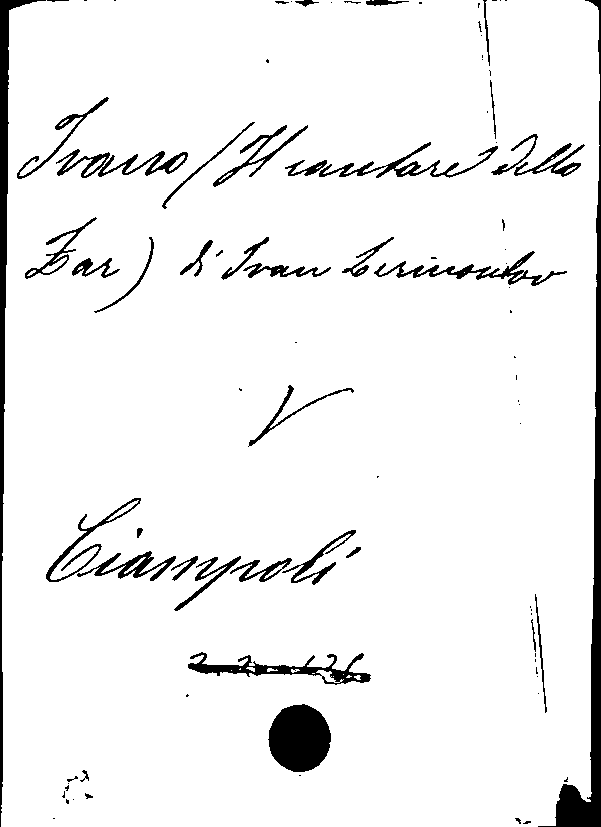 Ivano (Il cantare dello
Zar) di Ivan Lermontov
V
Ciampoli